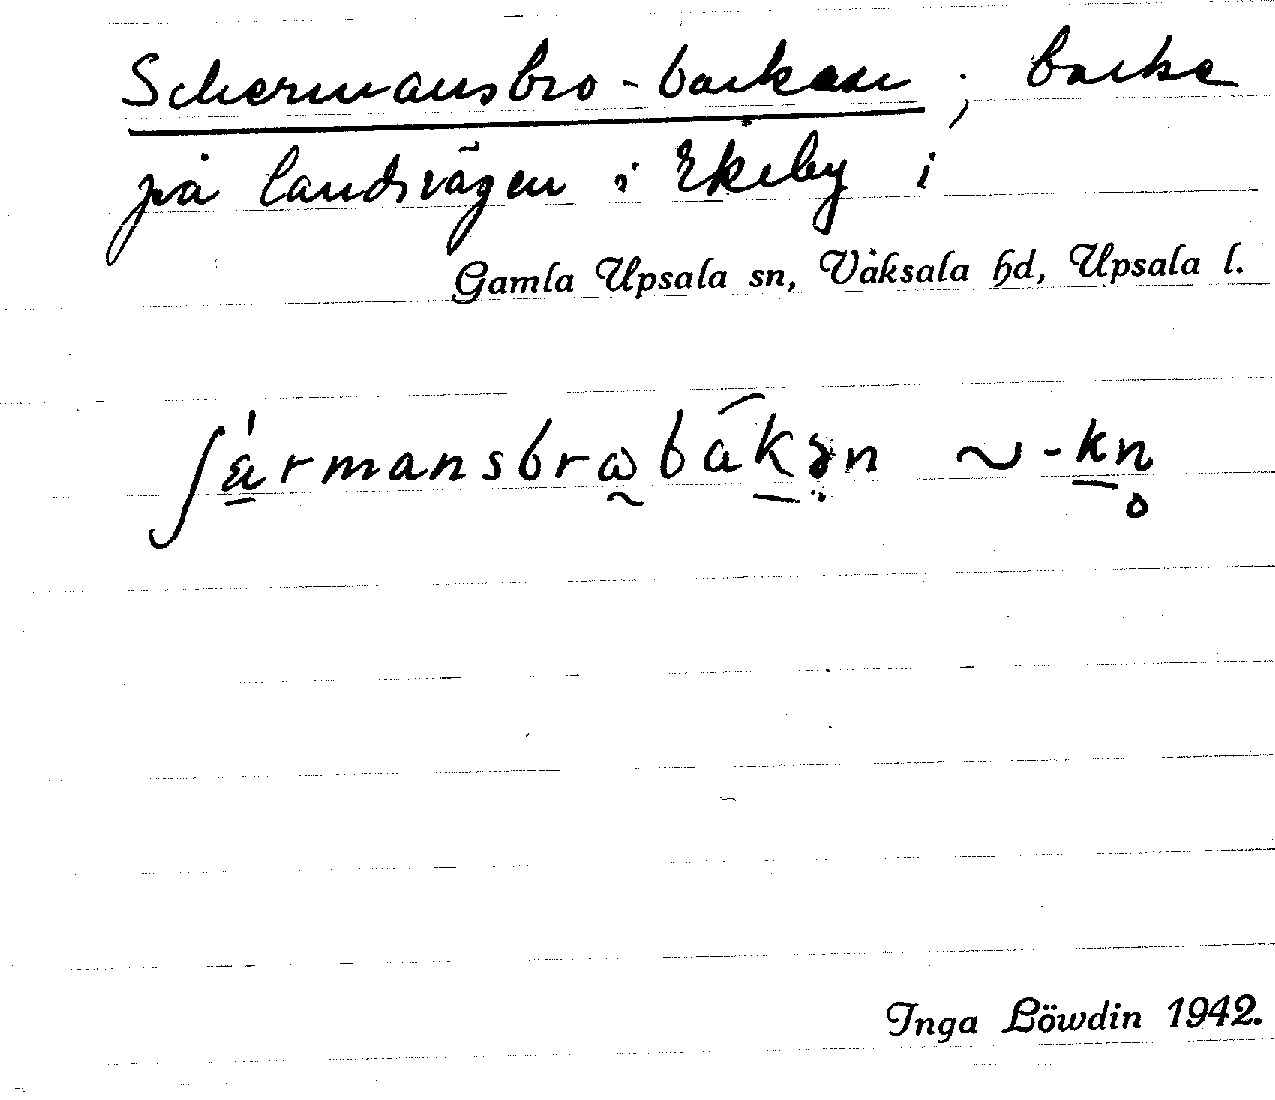 Schermansbro-backen; backe
på landsvägen i Ekeby i
Gamla Upsala sn, Vaksala hd, Upsala l.
ʃä́rmansbrω̰bákən ~ -kn̥
Inga Löwdin 1942.